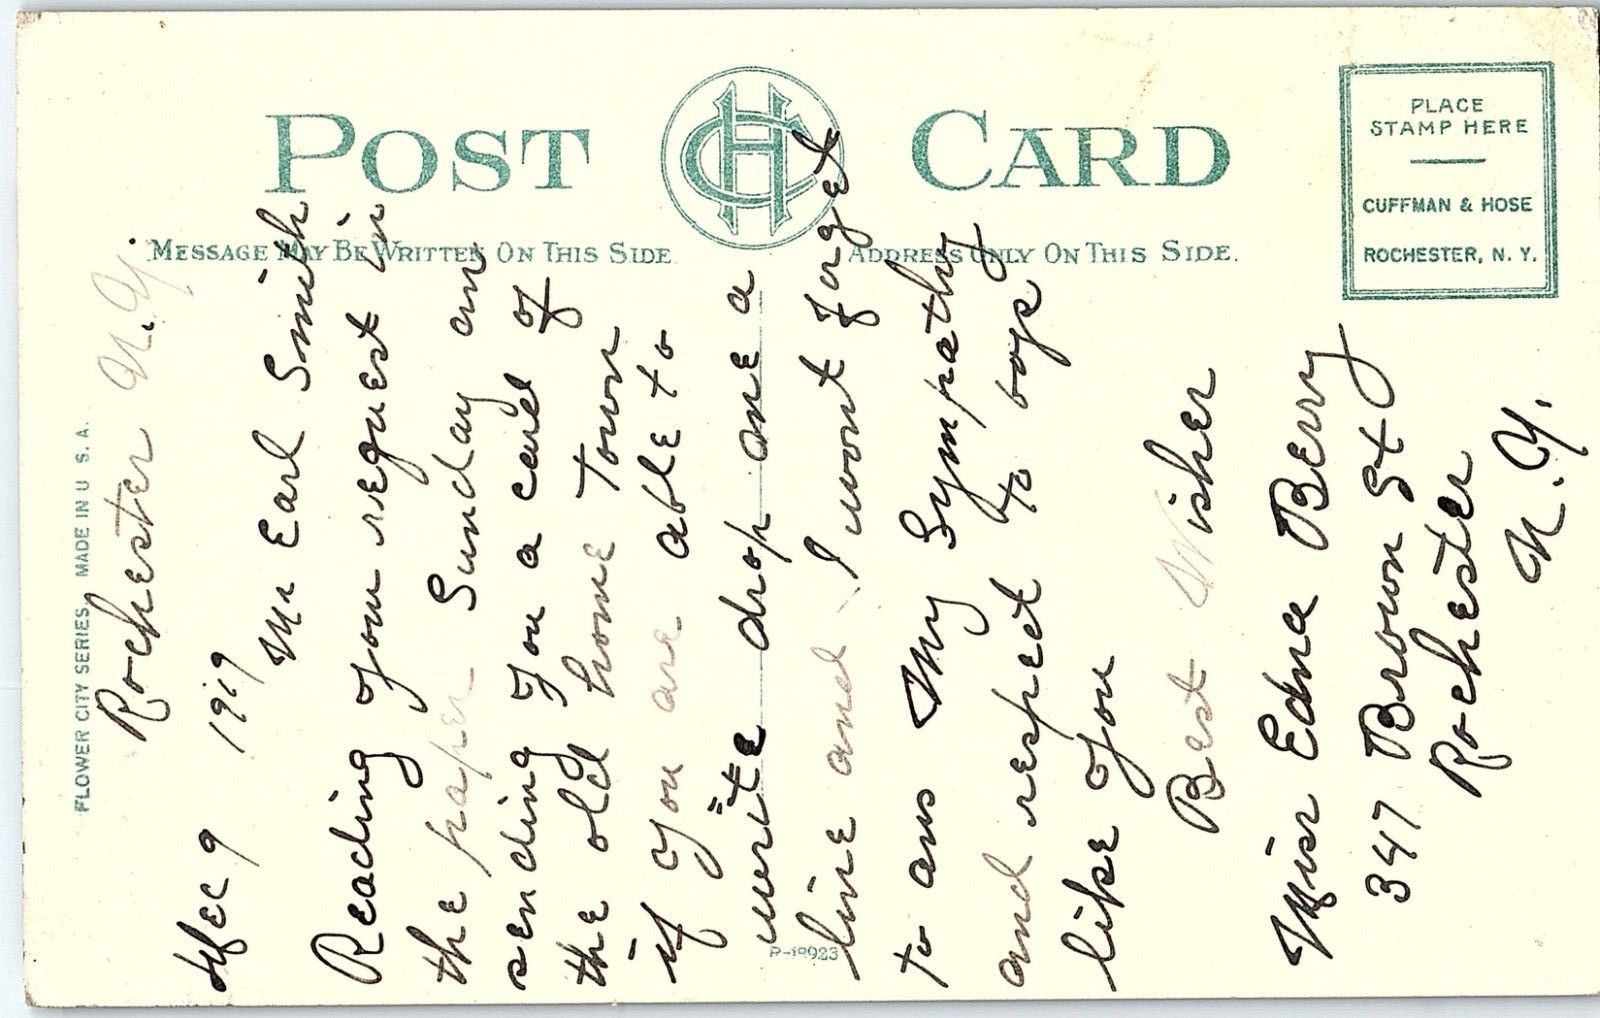 POST CARD
MESSAGE MAY BE WRITTEN ON THIS SIDE
ADDRESS ONLY ON THIS SIDE.
PLACE
STAMP HERE
CUFFMAN & HOSE
ROCHESTER, N. Y.
FLOWER CITY SERIES. MADE IN U. S. A.
P-18923
Rochester N.Y.
Dec 9 1919
Mr Earl Smith
Reading your request in
the paper Sunday am
sending you a card of
the old home Town
if you are able to
write drop one a
line and I wont forget
to ans My Sympathy
and respect to boys
like you
Best Wisher
Miss Edna Berry
347 Brown St
Rochester
N.Y.